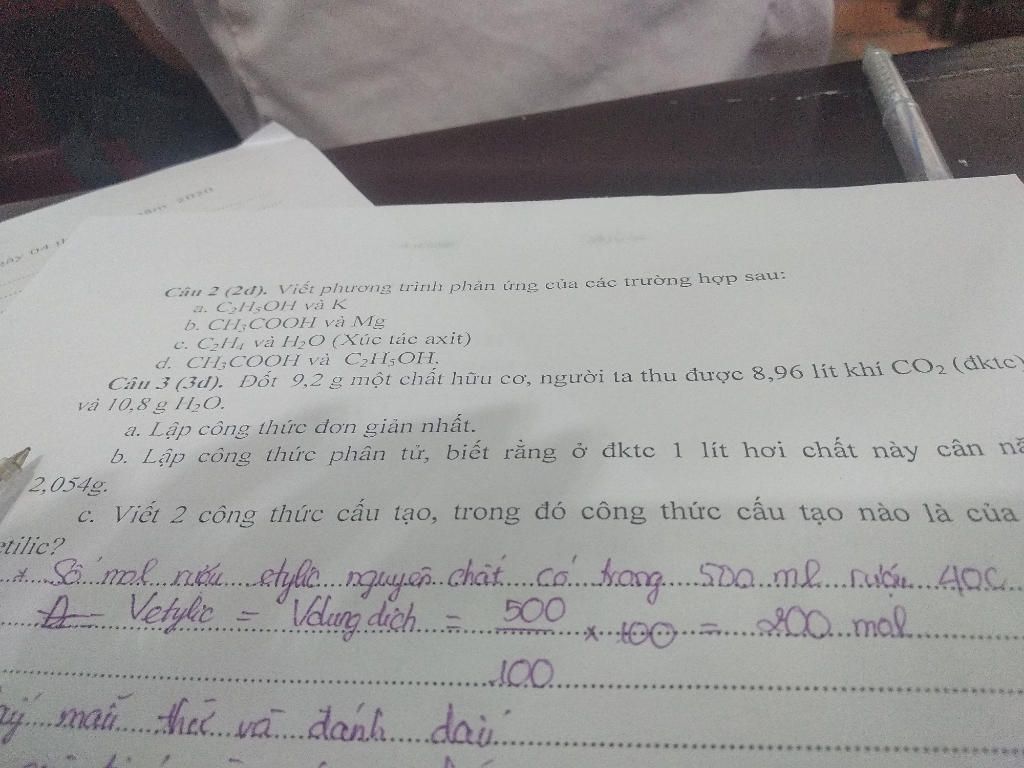 năm 2020
04
Câu 2 (2đ). Viết phương trình phản ứng của các trường hợp sau:
a. C₂H₅OH và K
b. CH₃COOH và Mg
c. C₂H₄ và H₂O (Xúc tác axit)
d. CH₃COOH và C₂H₅OH.
Câu 3 (3đ). Đốt 9,2 g một chất hữu cơ, người ta thu được 8,96 lít khí CO₂ (đktc)
và 10,8 g H₂O.
a. Lập công thức đơn giản nhất.
b. Lập công thức phân tử, biết rằng ở đktc 1 lít hơi chất này cân
2,054g.
c. Viết 2 công thức cấu tạo, trong đó công thức cấu tạo nào là của
etilic?
* Số mol rượu etylic nguyên chất có trong 500 ml rượu 40C
Vetylic = Vdung dịch = 500/100 × 100 = 200 mol
mẫu thử và đánh dấu